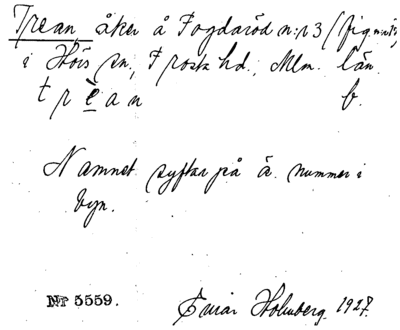 Trean åker å Fogdaröd n:r 3
i Hörs sn, Frosta hd., Mlm. län.
t r è a n b.
Namnet syftar på ä. nummer i
byn.
Nr 5559. Einar Holmberg. 1927.